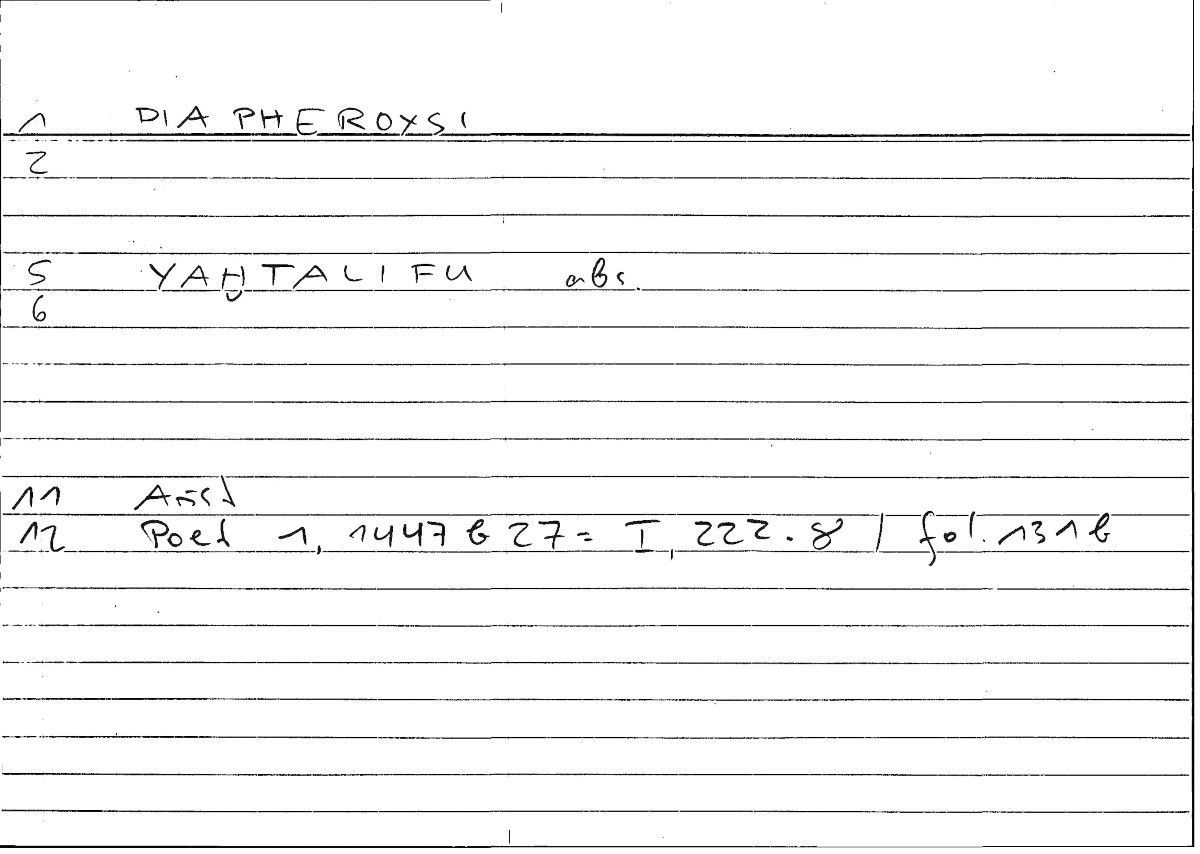 1 DIAPHEROYSI
2
5 YAḪTALIFU abs.
6
11 Arist
12 Poet 1, 1447 b 27 = I, 222.8 / fol. 131b